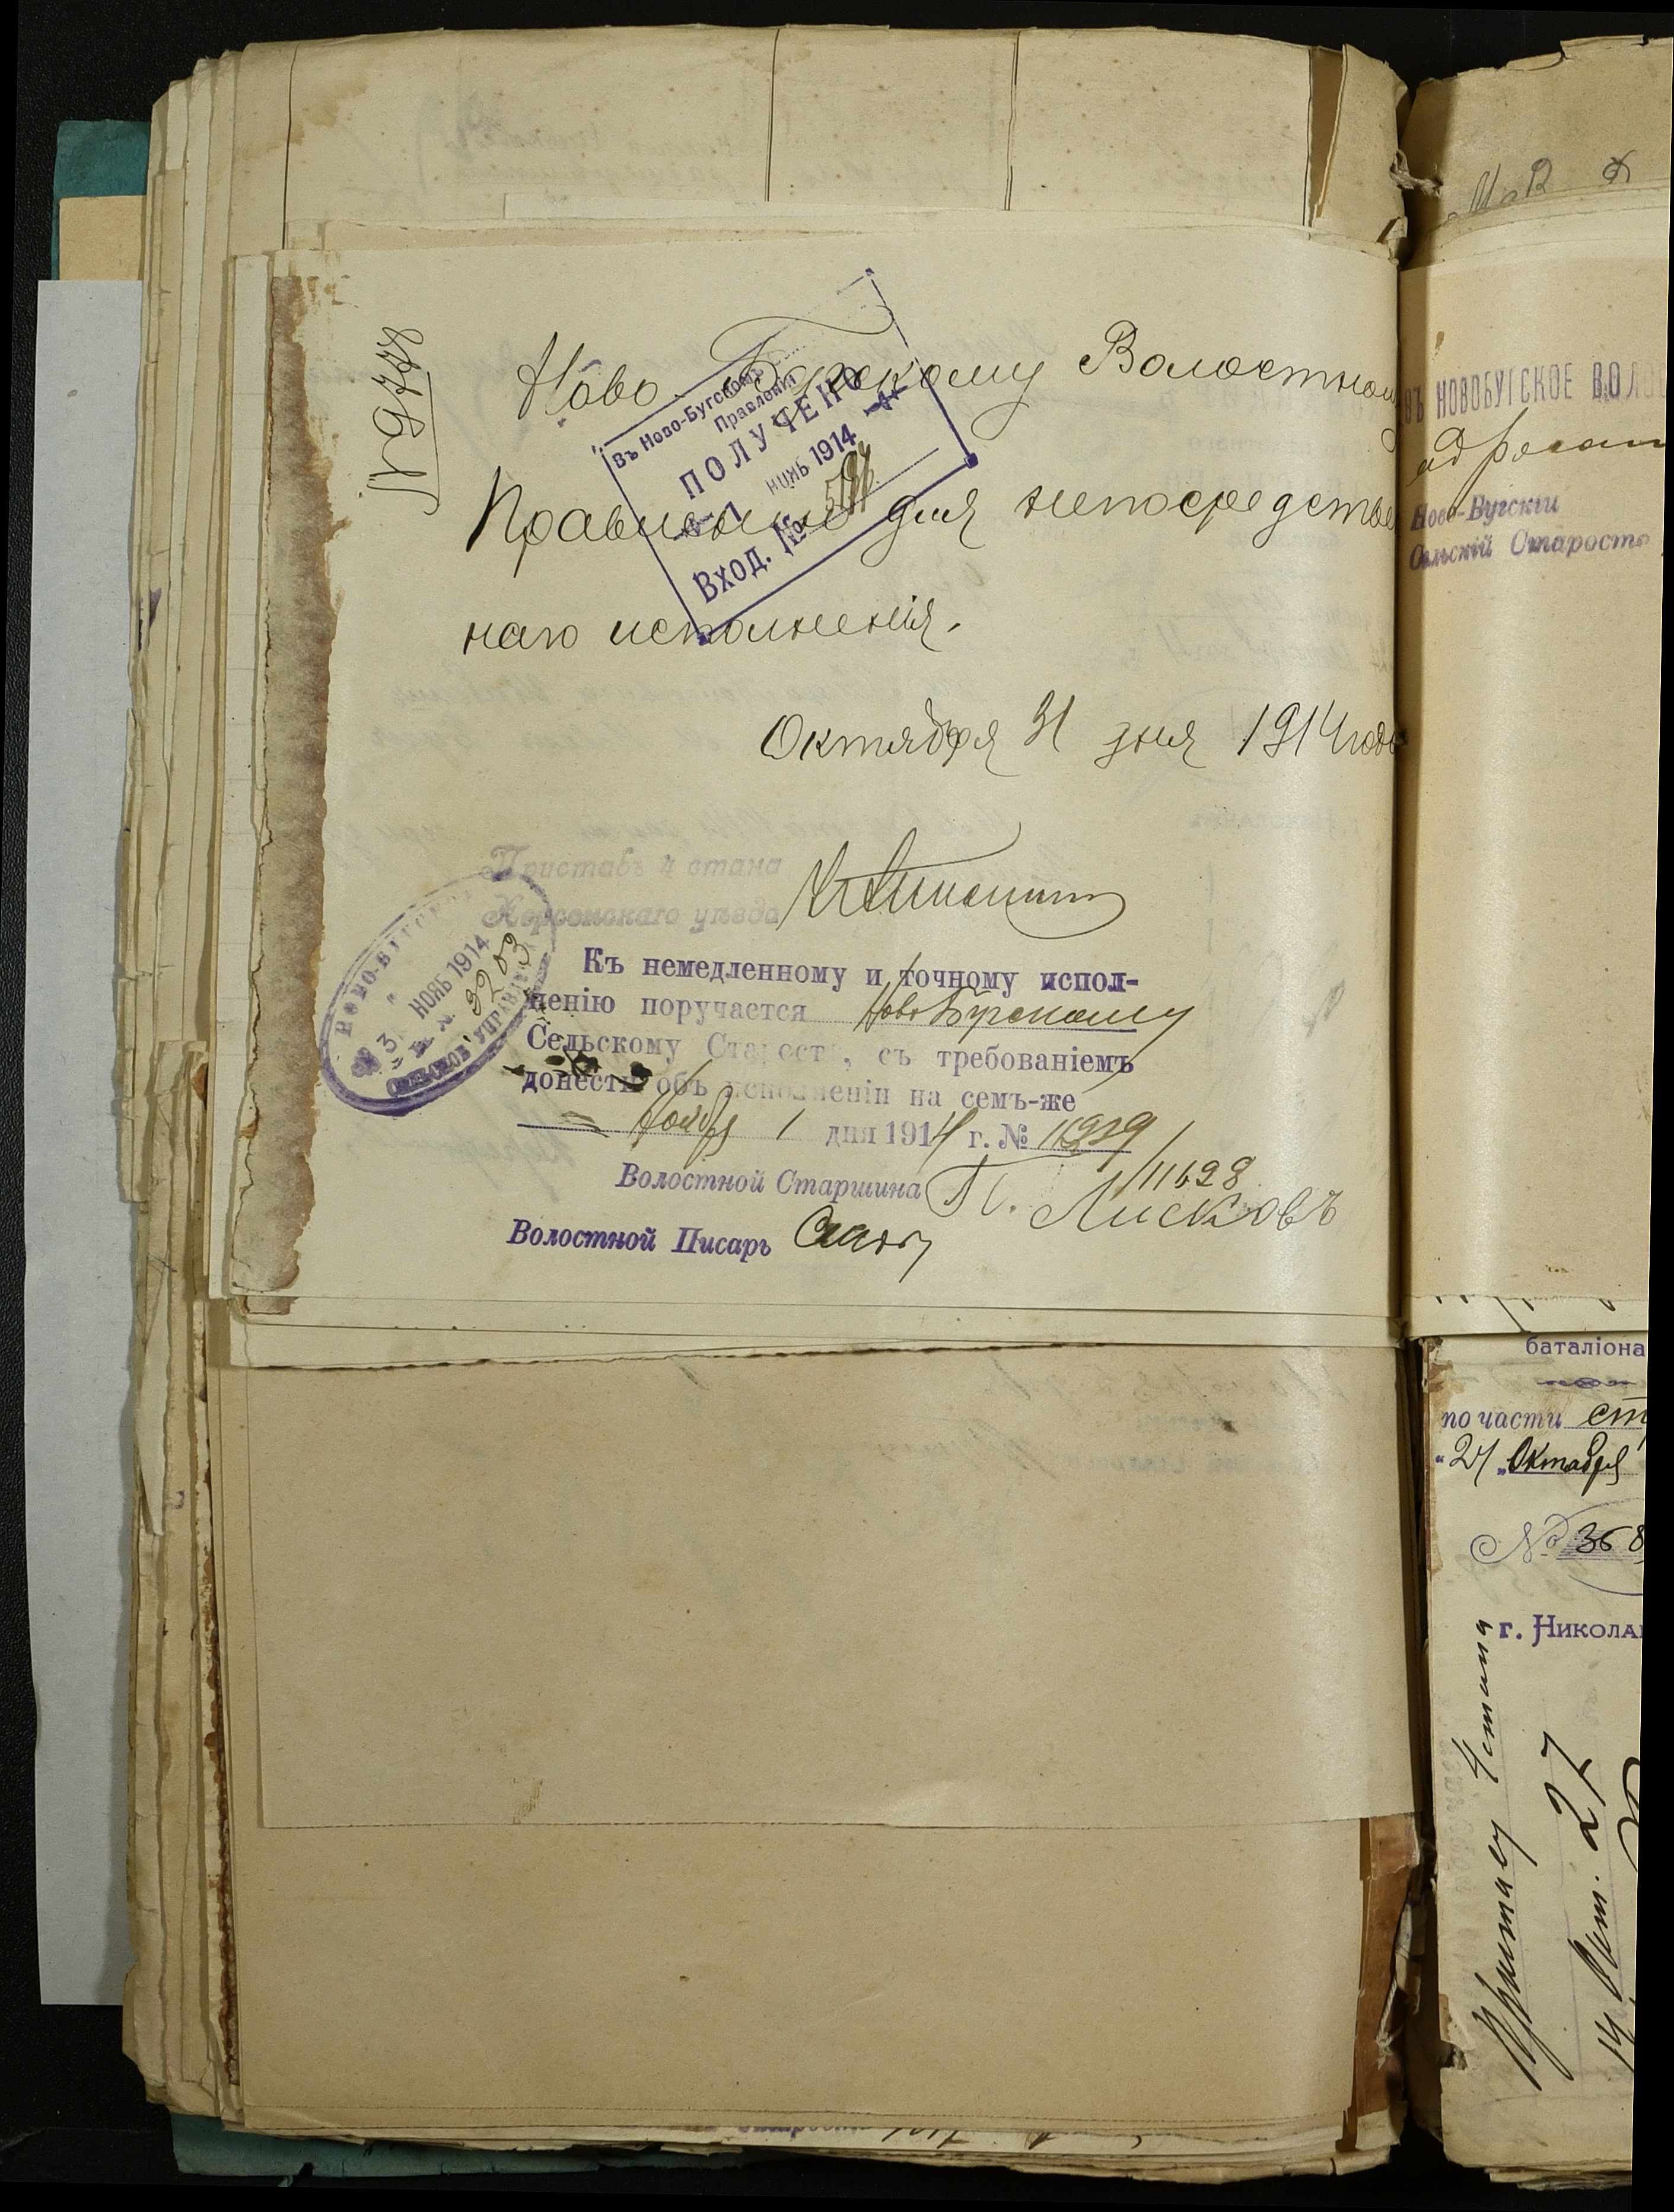 № 9778
Ново-Бугскому Волостному
Правленію для непосредствен
наго исполненія.
Въ Ново-Бугскомъ
Правленіи
ПОЛУЧЕНО
1 НОЯБ 1914
Вход. №
Октября 31 дня 1914 года
Приставъ 4 стана
Херсонскаго уѣзда
НОВО-БУГСКОЕ
3 НОЯБ 1914
№ 3203
СЕЛЬСКОЕ УПРАВЛ
Къ немедленному и точному испол-
ненію поручается НовоБугскому
Сельскому Старостѣ, съ требованіемъ
донести объ исполненіи на семъ-же
Ноября 1 дня 1914 г. № 11939
11698
Волостной Старшина П. Лисковъ
Волостной Писарь
ВЪ НОВОБУГСКОЕ ВОЛОС
адресат
Ново-Бугскій
Сельскій Староста
баталіона
по части ст
"24 " Октября
№ 368
г. Никола
Приставу 4 стана
27